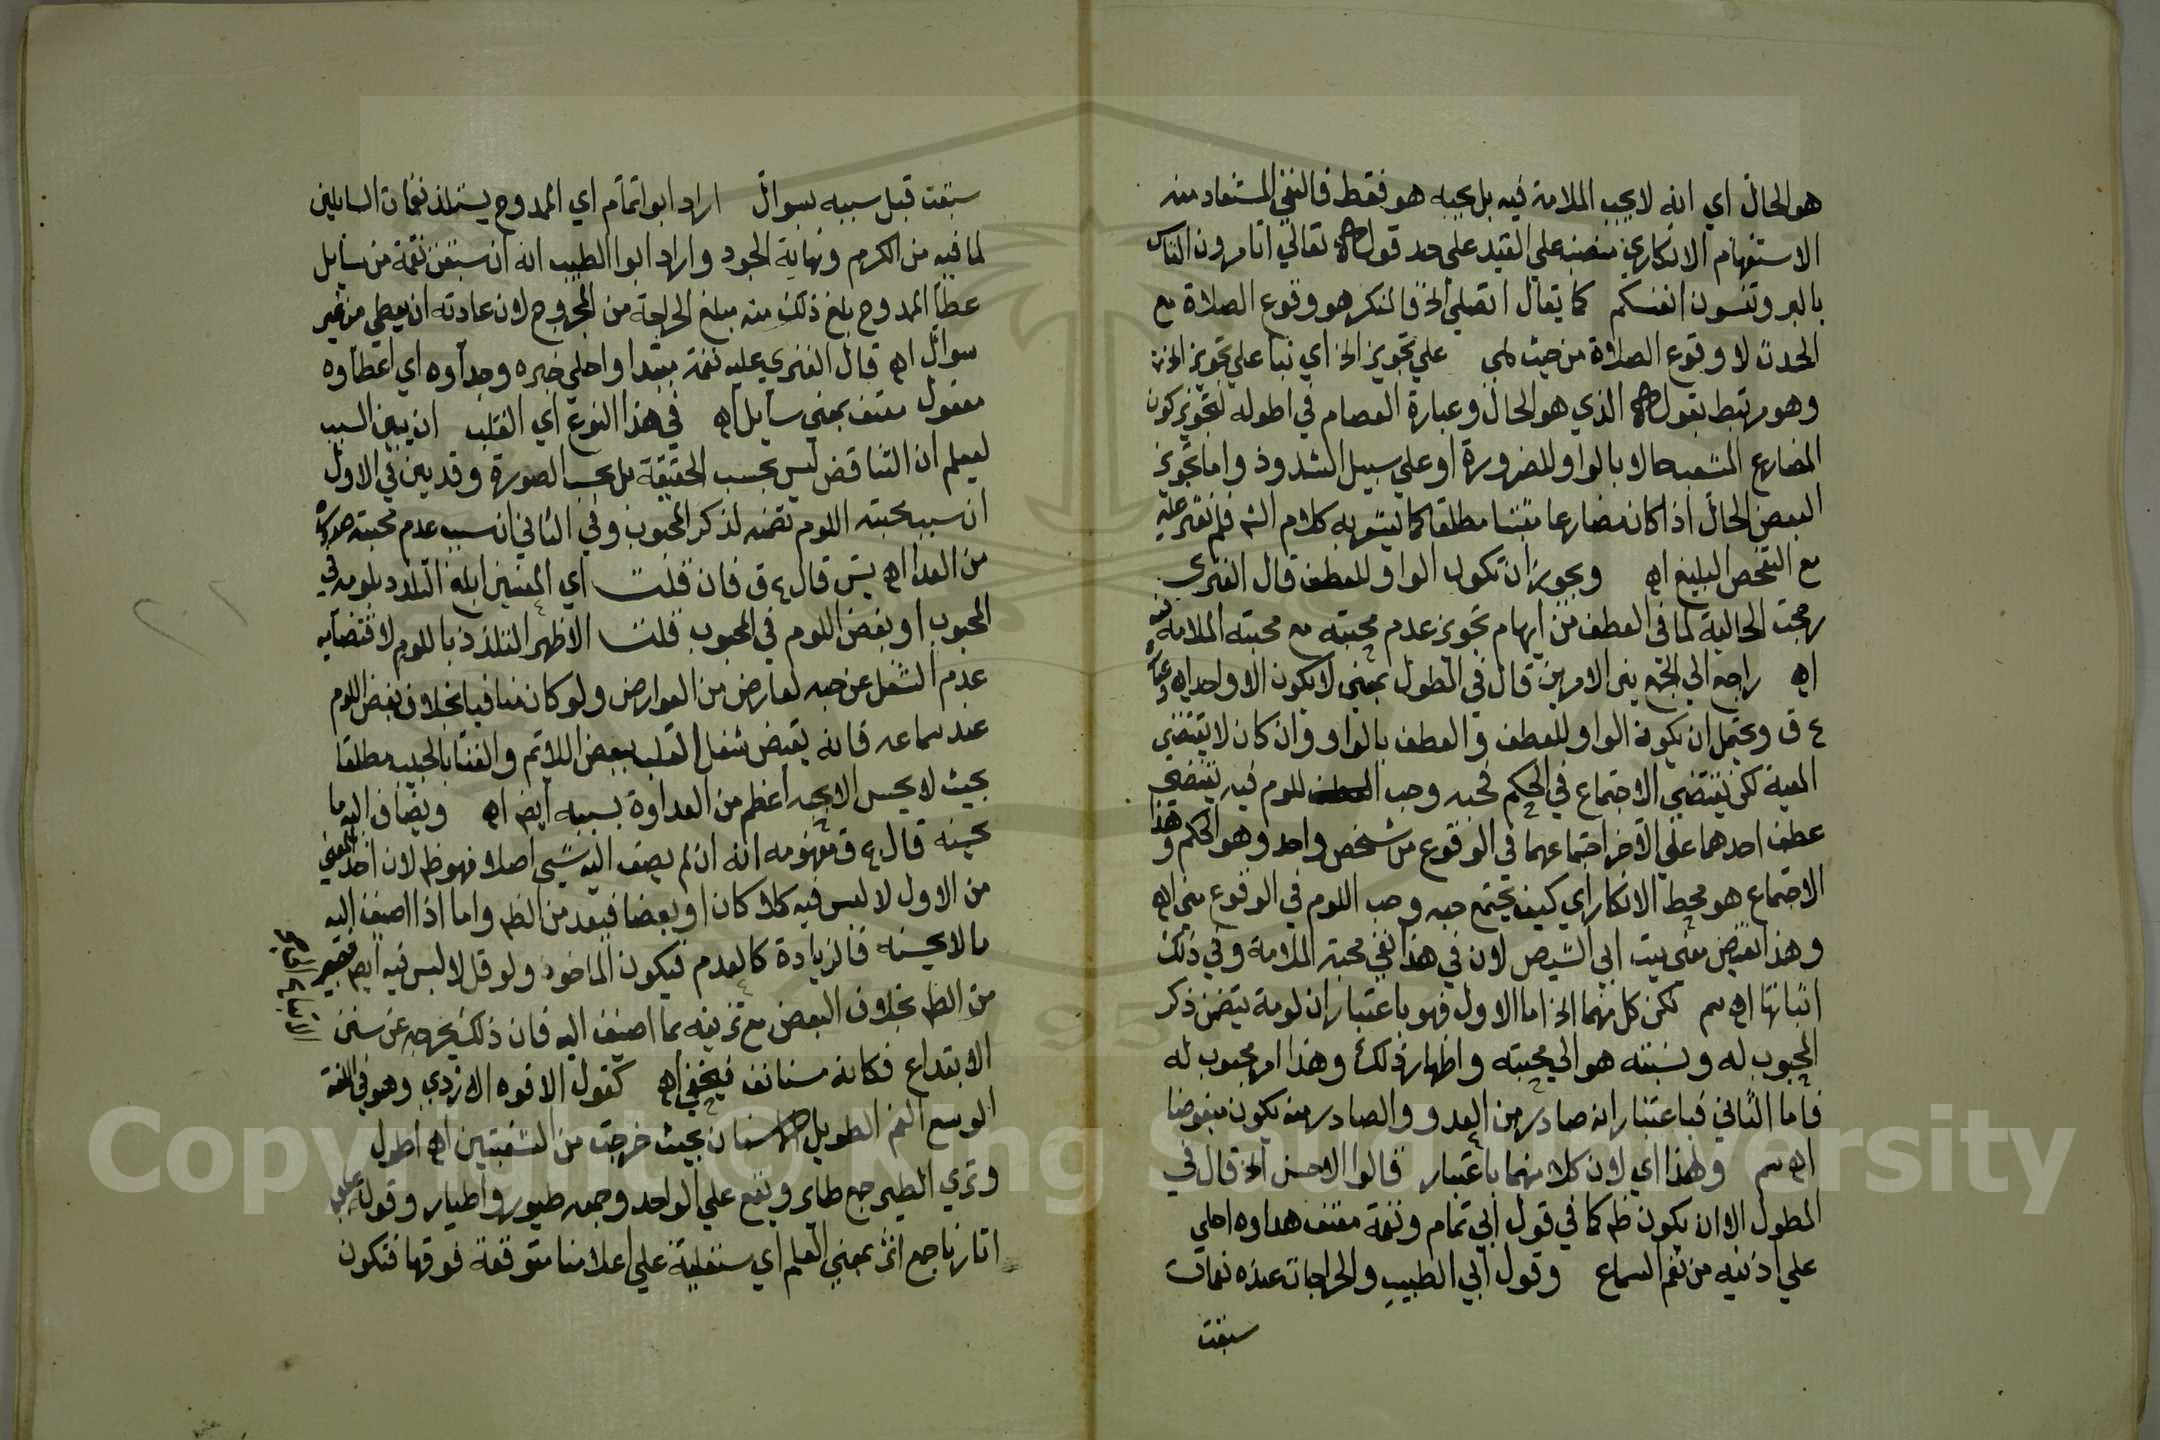 هو الحال اي انه لا يحب الملامة فيه بل يحبه هو فقط فالنفي المستفاد منه
الاستفهام الانكاري منصبه علي القيد علي حد قوله تعالي اتامرون الناس
بالبر وتنسون انفسكم كما يقال اتصلي الخ فالمنكر هو وقوع الصلاة مع
الحدث لا وقوع الصلاة من حيث هي علي تجويز الخ اي بنا علي تجويز الخ
وهو مرتبط بقوله الذي هو الحال وعبارة العصام في اطوله لتجويز كون
المضارع المثبت حالا بالواو للضرورة او علي سبيل الشذوذ واما تجويز
البعض الحال اذا كان مضارعا مثبتا مطلقا كما يشعر به كلام الش فلم نعثر عليه
مع التفحص البليغ اه ويجوز ان تكون الواو للعطف قال الفنري
رجحت الحالية لما في العطف من ايهام تجويز عدم محبته مع محبته الملامة فيه
اه راجع الي الجمع بين الامرين قال في المطول بمعني لا يكون الا واحد اه وعبارة
ع ق ويحتمل ان يكون الواو للعطف والعطف بالواو وان كان لا يقتضي
المعية لكن يقتضي الاجتماع في الحكم فحبه وحب اللوم فيه يقتضي
عطف احدهما علي الاخر اجتماعهما في الوقوع من شخص واحد وهو الحكم وهذا
الاجتماع هو محط الانكار اي كيف يجتمع حبه وحب اللوم في الوقوع مني اه
وهذا نقيض معني بيت ابي الشيص لان في هذا نفي محبة الملامة وفي ذلك
اثباتها اه سم لكن كل منهما الخ اما الاول فهو باعتبار ان لومه يتضمن ذكر
المحبوب له ونسبته هو الي محبته واظهار ذلك وهذا امر محبوب له
فاما الثاني فباعتبار انه صادر من العدو والصادر منه يكون مبغوضا
اه سم ولهذا اي لان كلا منهما باعتبار قالوا الاحسن الخ قال في
المطول الا ان يكون ظ كما في قول ابي تمام ونغمة معتف جدواه احلي
علي اذنيه من نغم السماع وقول ابي الطيب والجراحات عنده نغمات
سبقت
سبقت قبل سيبه بسوال اراد ابو تمام اي الممدوح يستلذ نغمات السايلين
لما فيه من الكرم ونهاية الجود واراد ابو الطيب انه ان سبقت نغمة من سايل
عطا الممدوح بلغ ذلك منه مبلغ الجراحة من المجروح لان عادته ان يعطي من غير
سوال اه قال الفنري عليه نغمة مبتدا واحلي خبره وجدواه اي اعطاوه
مفعول معتف بمعني سايل اه في هذا النوع اي القلب ان يبين السبب
ليعلم ان التناقض ليس بحسب الحقيقة بل بحسب الصورة وقد بين في الاول
ان سبب محبته اللوم تضمنه لذكر المحبوب وفي الثاني ان سبب عدم محبته صدوره
من العدا اه يس قال ع ق فان قلت اي المعنيين ابلغ التلذذ بلومه في
المحبوب او بغض اللوم في المحبوب قلت الاظهر التلذذ باللوم لاقتضائه
عدم الشغل عن حبه لعارض من العوارض ولو كان منافيا بخلاف بغض اللوم
عند سماعه فانه يقتضي شغل القلب ببغض اللائم والفنا بالحبيب مطلقا
بحيث لا يحس الا بحبه اعظم من العداوة بسببه ايض اه ويضاف اليه ما
يحسنه قال ع ق مفهومه انه ان لم يضف اليه شيي اصلا فهو ظ لان اخذ المعني
من الاول لا لبس فيه كلا كان او بعضا فيعد من الظ واما اذا اضيف اليه
ما لا يحسنه فالزيادة كالعدم فيكون الماخوذ ولو قل لا لبس فيه ايض فيصير
من الظ بخلاف البعض مع تزيينه بما اضيف اليه فان ذلك يخرجه عن سنن
الابتداع فكانه مستانف فيخفي اه كقول الافوه الازدي وهو في اللغة
الوسع الفم الطويل الاسنان بحيث خرجت من الشفتين اه اطول
وتري الطير جمع طائر ويقع علي الواحد وجمعه طيور واطيار وقوله علي
اثارنا جمع اثر بمعني العلم اي مستعلية علي اعلامنا متوقعة فوقها فتكون